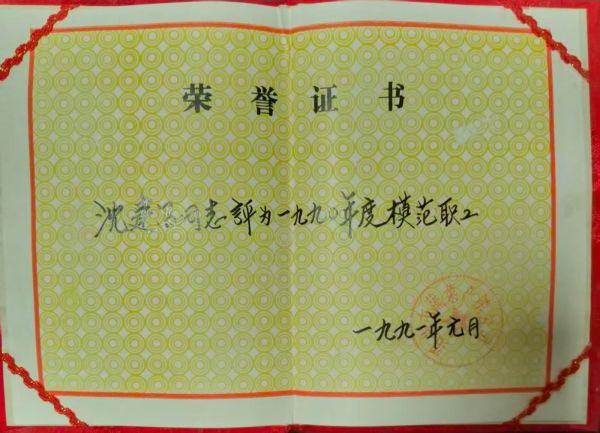 荣誉证书
沈建马同志評为一九九〇年度模范职工
一九九一年元月